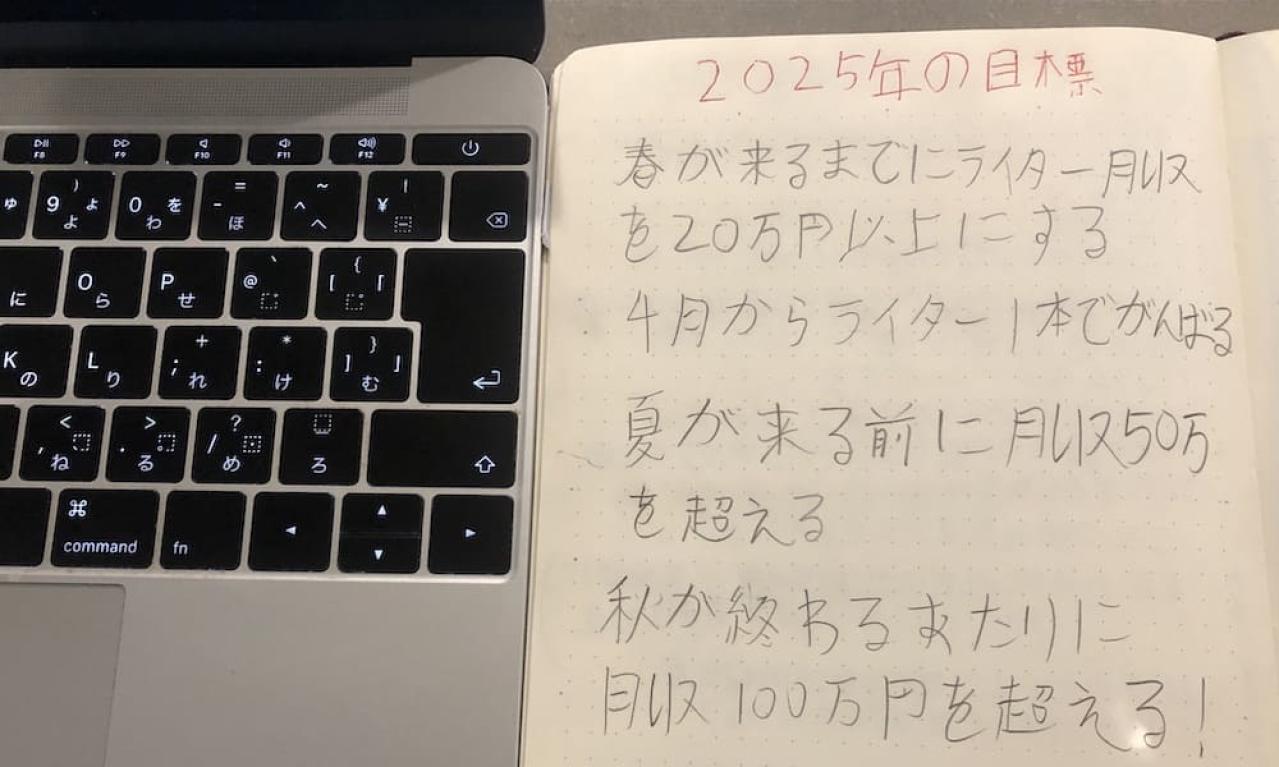 F8 F9 F10 F11 F12
ゅ ) 9 ょ よ 0 を わ = - ほ ~ ^ へ ! ¥ ー
に O ら P せ ` @ { [ 「
K の L り + ; れ * : け } ] 」 む
< , 、 ね > . 。 る ? / ・ め _ ろ
⌘ command fn
2025年の目標
春が来るまでにライター月収
を20万円以上にする
4月からライター1本でがんばる
夏が来る前に月収50万
を超える
秋が終わるあたりに
月収100万円を超える!